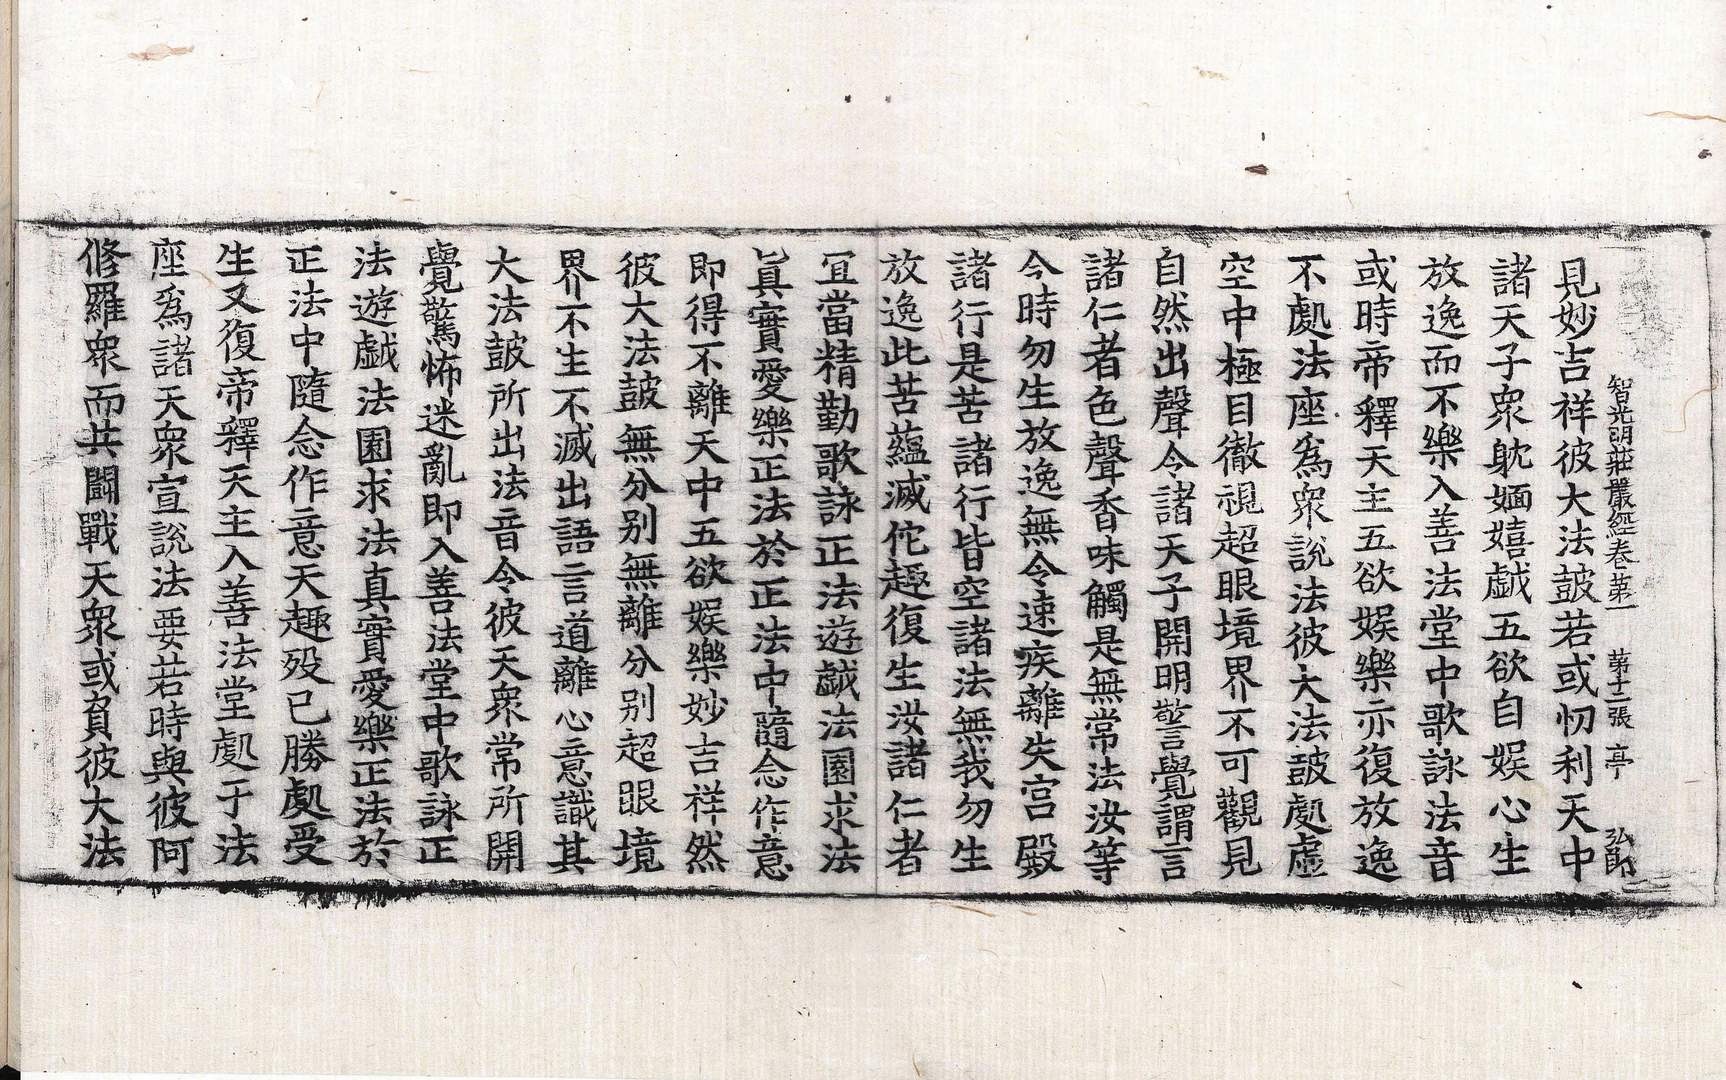 智光明莊嚴經卷苐一　苐十二張　亭　弘郎
見妙吉祥彼大法鼓若或忉利天中
諸天子衆躭婳嬉戱五欲自娛心生
放逸而不樂入善法堂中歌詠法音
或時帝釋天主五欲娛樂亦復放逸
不處法座爲衆說法彼大法鼓處虛
空中極目徹視超眼境界不可觀見
自然出聲令諸天子開明警覺謂言
諸仁者色聲香味觸是無常法汝等
今時勿生放逸無令速疾離失宮殿
諸行是苦諸行皆空諸法無我勿生
放逸此苦蘊滅佗趣復生汝諸仁者
宜當精勤歌詠正法遊戱法園求法
眞實愛樂正法於正法中隨念作意
即得不離天中五欲娛樂妙吉祥然
彼大法鼓無分别無離分别超眼境
界不生不滅出語言道離心意識其
大法鼓所出法音令彼天衆常所開
覺驚怖迷亂即入善法堂中歌詠正
法遊戱法園求法真實愛樂正法於
正法中隨念作意天趣歿已勝處受
生又復帝釋天主入善法堂處于法
座爲諸天衆宣說法要若時與彼阿
修羅衆而共鬬戰天衆或負彼大法